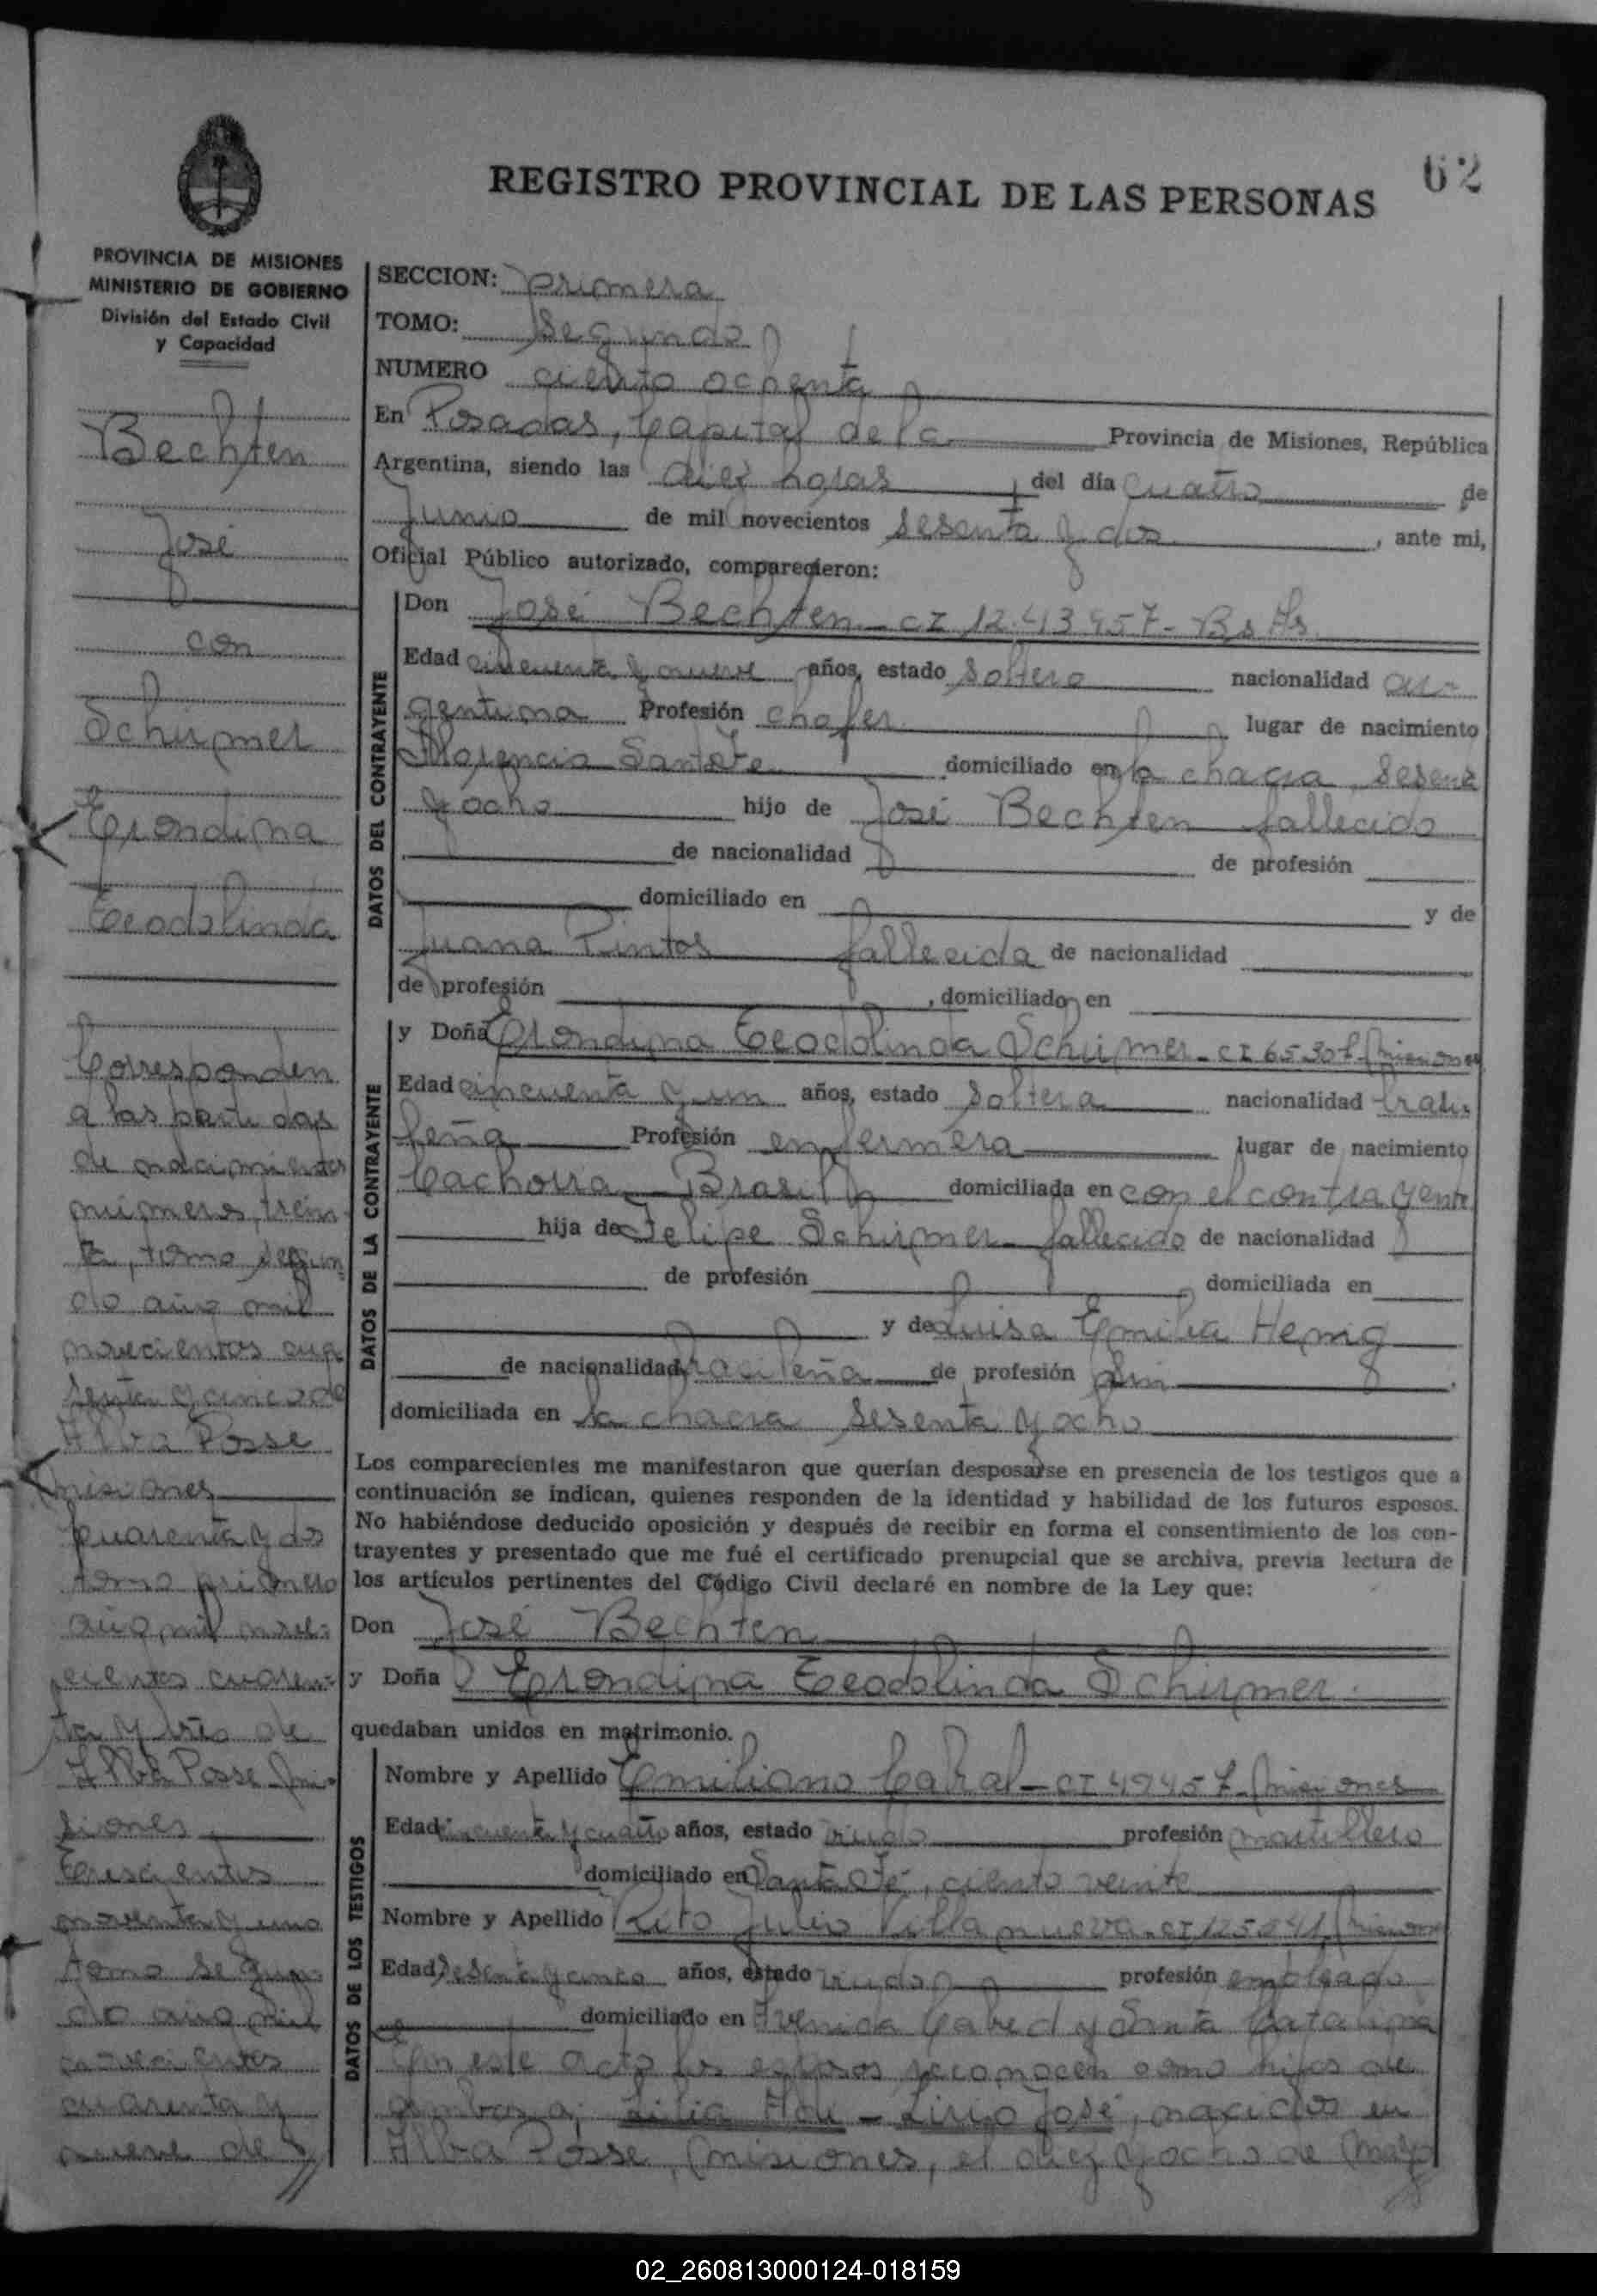 62
REGISTRO PROVINCIAL DE LAS PERSONAS
PROVINCIA DE MISIONES
MINISTERIO DE GOBIERNO
División del Estado Civil
y Capacidad
Bechten
José
con
Schirmer
Erondina
Teodolinda
Corresponden
a las partidas
de nacimientos
números, trein
ta, tomo segun
do año mil
novecientos cua
renta y cinco de
Alba Posse
Misiones
Cuarenta y dos
tomo primero
año mil nove-
cientos cuaren-
ta y tres de
Alba Posse Mi-
siones
Trescientos
noventa y uno
tomo segun-
do año mil
novecientos
cuarenta y
nueve de
SECCION: primera
TOMO: Segundo
NUMERO ciento ochenta
En Posadas, Capital de la Provincia de Misiones, República
Argentina, siendo las diez horas del día cuatro de
Junio de mil novecientos sesenta y dos, ante mi,
Oficial Público autorizado, comparecieron:
DATOS DEL CONTRAYENTE
Don José Bechten - CI Bs As
Edad cincuenta y nueve años, estado soltero nacionalidad ar-
gentina Profesión chofer lugar de nacimiento
Florencia Santa Fe domiciliado en la chacra sesenta
y ocho hijo de José Bechten fallecido
de nacionalidad de profesión
domiciliado en y de
Juana Pintos fallecida de nacionalidad
de profesión , domiciliado en
DATOS DE LA CONTRAYENTE
y Doña Erondina Teodolinda Schirmer - CI Misiones
Edad cincuenta y un años, estado soltera nacionalidad brasi-
leña Profesión enfermera lugar de nacimiento
Cachoira - Brasil domiciliada en con el contrayente
hija de Felipe Schirmer - fallecido de nacionalidad
de profesión domiciliada en
y de Luisa Emilia Henig
de nacionalidad brasileña de profesión sin
domiciliada en la chacra sesenta y ocho
Los comparecientes me manifestaron que querían desposarse en presencia de los testigos que a
continuación se indican, quienes responden de la identidad y habilidad de los futuros esposos.
No habiéndose deducido oposición y después de recibir en forma el consentimiento de los con-
trayentes y presentado que me fué el certificado prenupcial que se archiva, previa lectura de
los artículos pertinentes del Código Civil declaré en nombre de la Ley que:
Don José Bechten
y Doña Erondina Teodolinda Schirmer
quedaban unidos en matrimonio.
DATOS DE LOS TESTIGOS
Nombre y Apellido Emiliano Cabral - CI Misiones
Edad cincuenta y cuatro años, estado viudo profesión martillero
domiciliado en Santa Fé, ciento veinte
Nombre y Apellido Rito Julio Villanueva - CI Misiones
Edad sesenta y cinco años, estado viudo profesión empleado
domiciliado en Avenida Cabred y Santa Catalina
En este acto los esposos reconocen como hijos de
ambos a: - Lirio José, nacidos en
Alba Posse, Misiones, el diez y ocho de Mayo
02_260813000124-018159